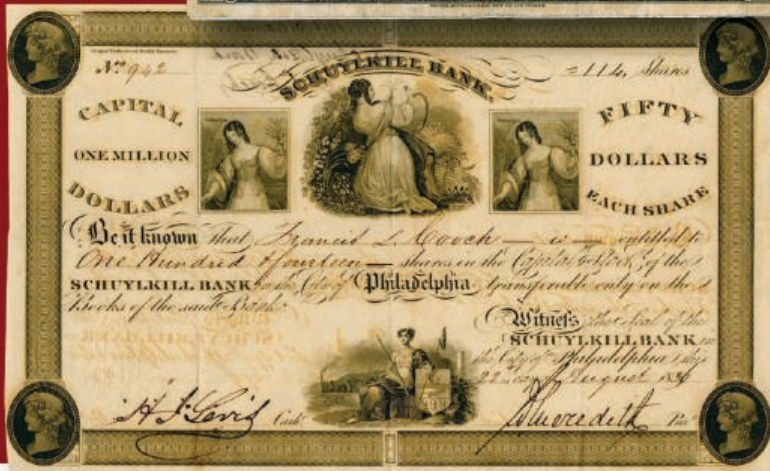 Nº 942
SCHUYLKILL BANK.
114, Shares
CAPITAL
ONE MILLION
DOLLARS
FIFTY
DOLLARS
EACH SHARE
Be it known that Francis L. Cooch is entitled to
One Hundred & fourteen shares in the Capital Stock of the
SCHUYLKILL BANK in the City of Philadelphia transferable only on the
Books of the said Bank.
Witness the Seal of the
SCHUYLKILL BANK in
the City of Philadelphia this
22 day of August 1836
H. J. Levis Cashr
Meredith Prest